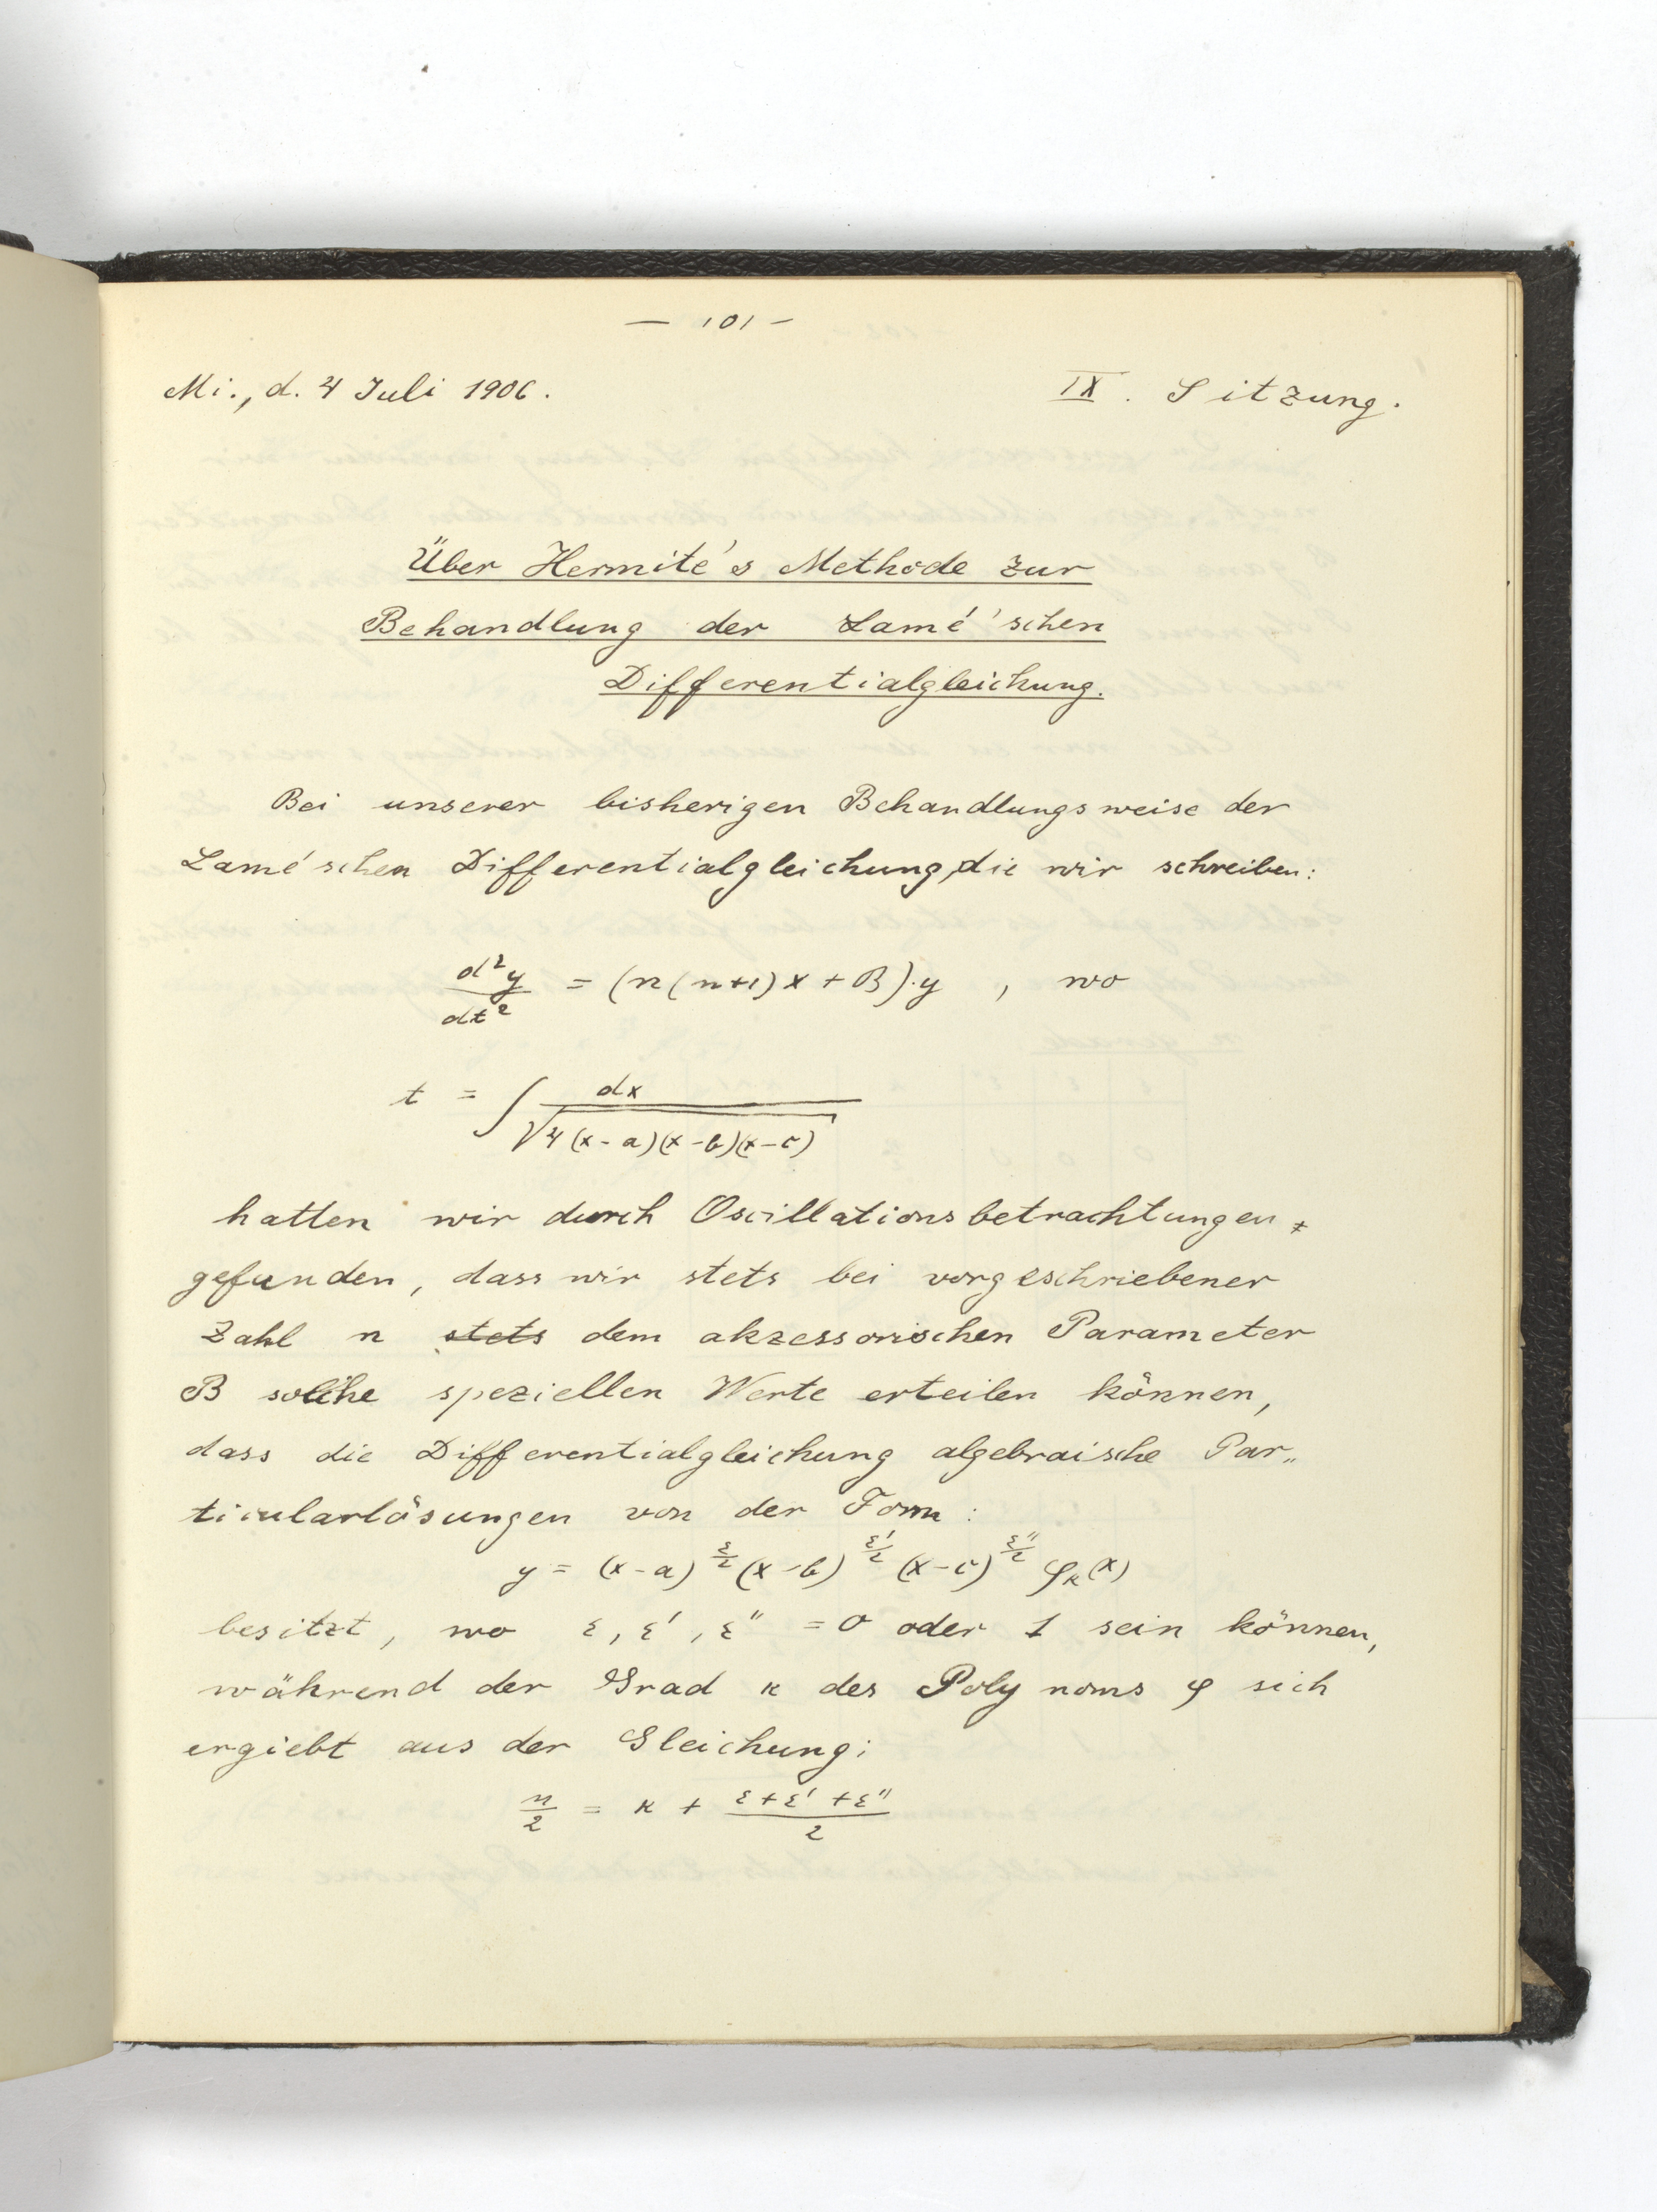 — 101 —
Mi., d. 4 Juli 1906. IX. Sitzung.
Über Hermite's Methode zur
Behandlung der Lamé'schen
Differentialgleichung.
Bei unserer bisherigen Behandlungsweise der
Lamé'schen Differentialgleichung, die wir schreiben:
d²y/dt² = (n(n+1)x + B)·y , wo
t = ∫ dx/√4(x-a)(x-b)(x-c)
hatten wir durch Oscillationsbetrachtungen
gefunden, dass wir stets bei vorgeschriebener
Zahl n stets dem akzessorischen Parameter
B solche speziellen Werte erteilen können,
dass die Differentialgleichung algebraische Par„
ticularlösungen von der Form:
y = (x-a)^ε/2 (x-b)^ε'/2 (x-c)^ε''/2 φκ(x)
besitzt, wo ε, ε', ε'' = 0 oder 1 sein können,
während der Grad κ des Polynoms φ sich
ergiebt aus der Gleichung:
n/2 = κ + (ε+ε'+ε'')/2